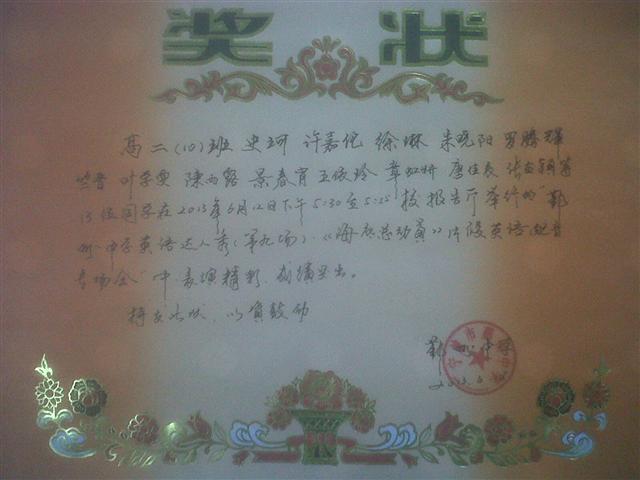 奖状
高二(10)班 史珂 许嘉倪 徐琳 朱晓阳 罗腾辉
叶季雯 陈雨露 景春宵 王依玲 章虹妍 唐佳表 张
13位同学在2013年6月12日下午5:30至5:55 校报告厅举行的"鄞
州中学英语达人秀(第九场)·《海底总动员》片段英语配音
专场会"中,表演精彩,成绩突出。
特发此状,以资鼓励
鄞州中学
2013.6